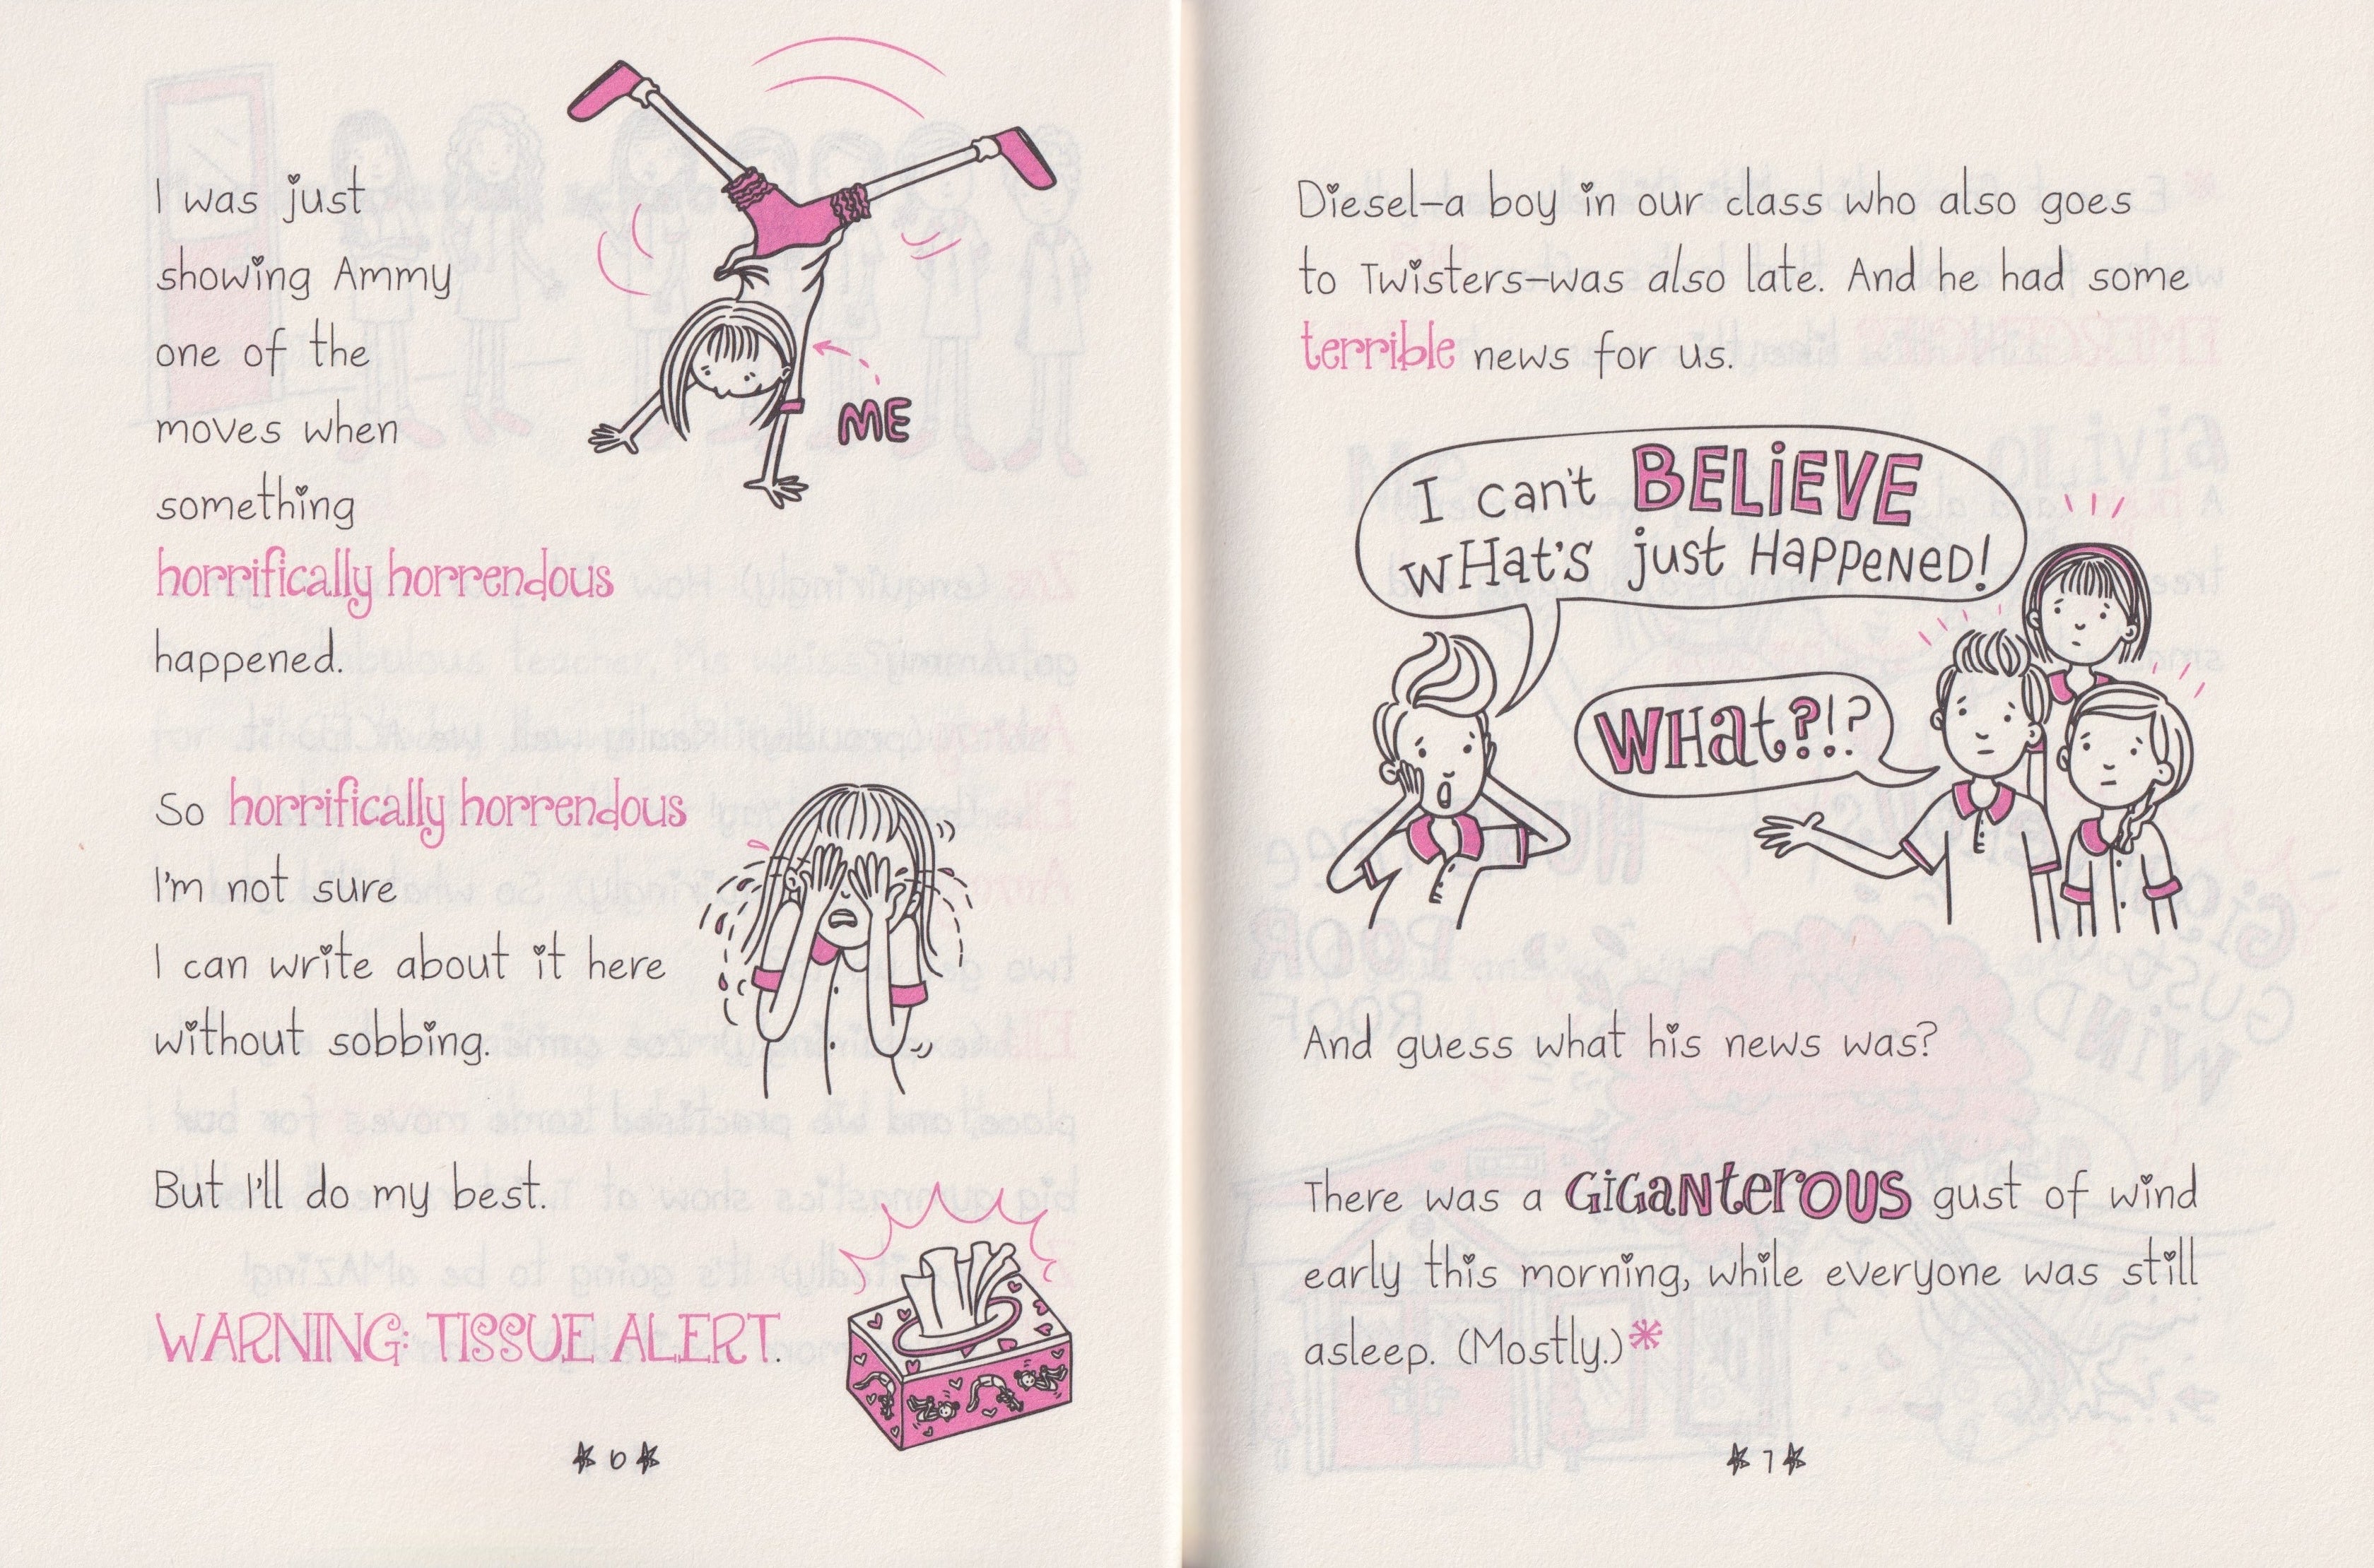 I was just
showing Ammy
one of the
moves when
something
horrifically horrendous
happened.
ME
So horrifically horrendous
I'm not sure
I can write about it here
without sobbing.
But I'll do my best.
WARNING: TISSUE ALERT.
6
Diesel–a boy in our class who also goes
to Twisters–was also late. And he had some
terrible news for us.
I can't BELiEVE
wHat's just HaPPeNeD!
WHat?!?
And guess what his news was?
There was a GiGaNterOUS gust of wind
early this morning, while everyone was still
asleep. (Mostly.)*
7